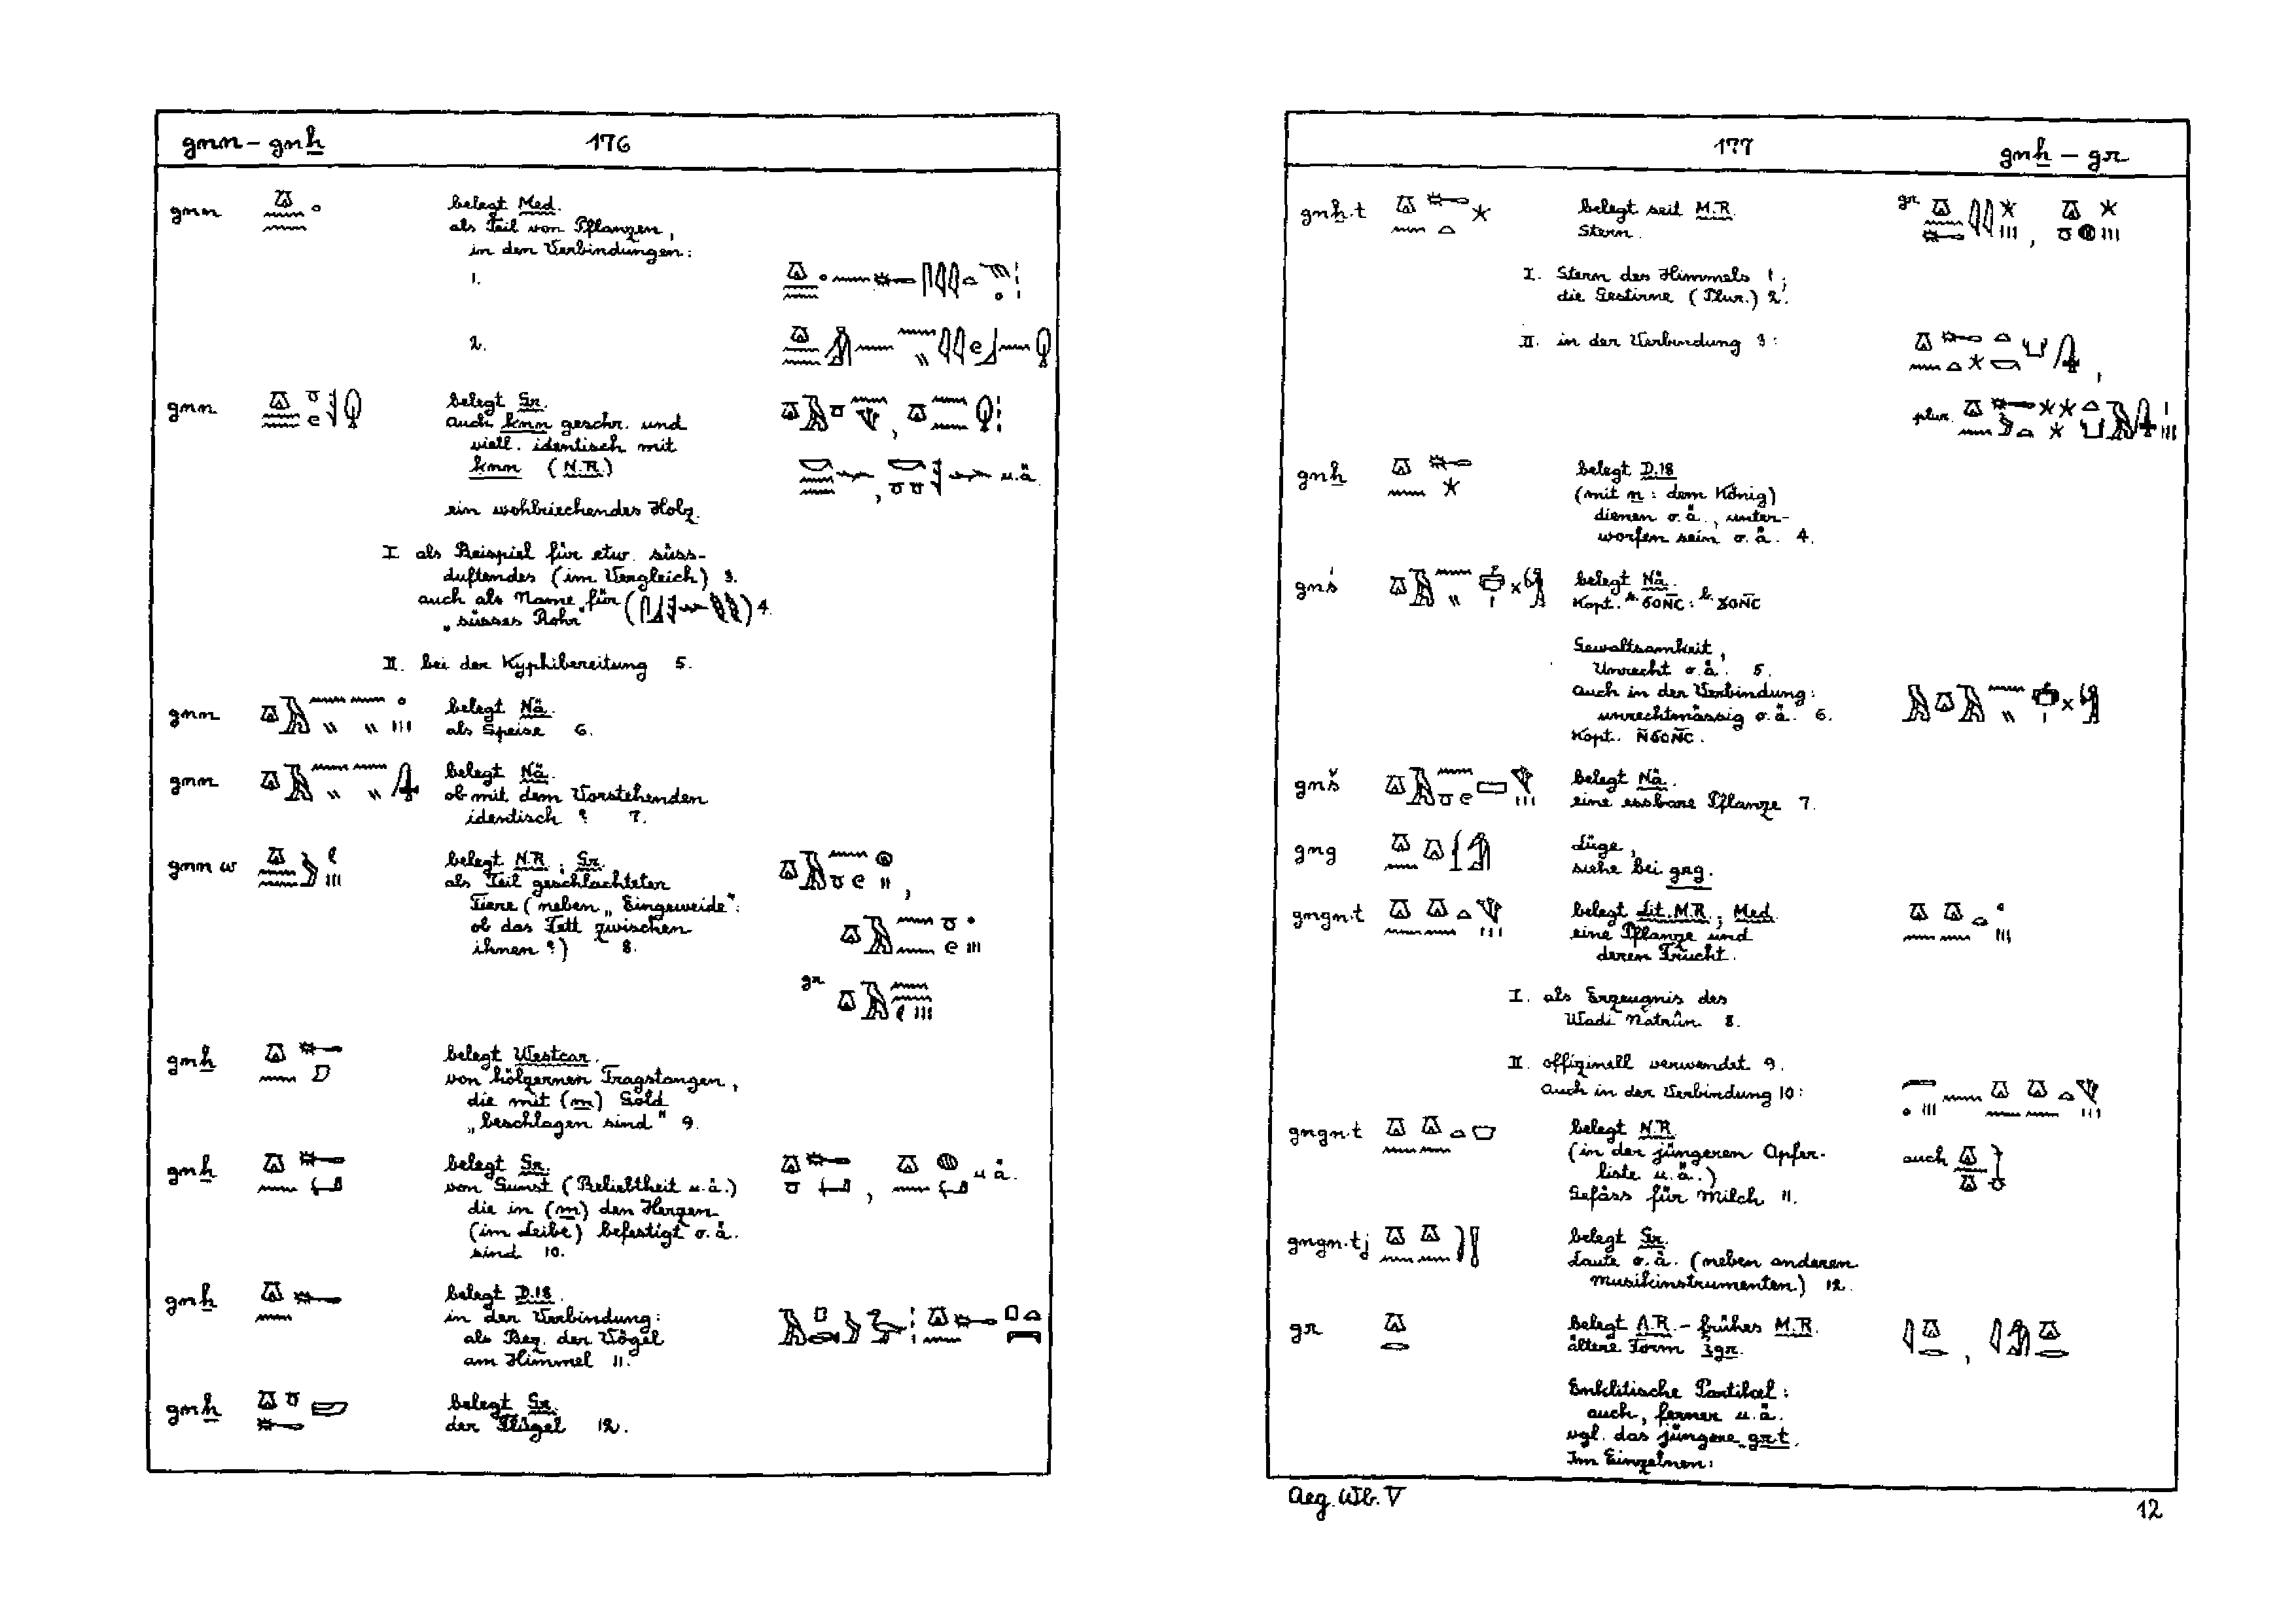 gnn – gnẖ 176
gnn belegt Med.
als Teil von Pflanzen,
in den Verbindungen:
1.
2.
gnn belegt Gr.
auch knn geschr. und
viell. identisch mit
knn (N.R.) u.ä.
ein wohlriechendes Holz.
I als Beispiel für etw. süss-
duftendes (im Vergleich) 3.
auch als Name für ( ) 4.
„süsses Rohr"
II. bei der Kyphibereitung 5.
gnn belegt Nä.
als Speise 6.
gnn belegt Nä.
ob mit dem Vorstehenden
identisch? 7.
gnn w belegt N.R.; Gr.
als Teil geschlachteter
Tiere (neben „Eingeweide":
ob das Fett zwischen
ihnen?) 8.
gr
gnẖ belegt Westcar.
von hölzernen Tragstangen,
die mit (m) Gold
„beschlagen sind" 9.
gnẖ belegt Gr.
von Gunst (Beliebtheit u.ä.) u.ä.
die in (m) den Herzen
(im Leibe) befestigt o.ä.
sind 10.
gnẖ belegt D.18.
in der Verbindung:
als Bez. der Vögel
am Himmel 11.
gnẖ belegt Gr.
der Flügel 12.
177 gnẖ – gr
gnẖ.t belegt seit M.R. gr.
Stern.
I. Stern des Himmels 1;
die Gestirne (Plur.) 2.
II. in der Verbindung 3:
plur.
gnẖ belegt D.18
(mit n: dem König)
dienen o.ä., unter-
worfen sein o.ä. 4.
gnś belegt Nä.
Kopt. A. ϭⲟⲛ̄ⲥ: B. ϫⲟⲛ̄ⲥ
Gewaltsamkeit,
Unrecht o.ä. 5.
Auch in der Verbindung:
unrechtmässig o.ä. 6.
Kopt. ⲛ̄ϭⲟⲛ̄ⲥ.
gnš belegt Nä.
eine essbare Pflanze 7.
gng Lüge,
siehe bei grg.
gngn.t belegt Lit. M.R.; Med.
eine Pflanze und
deren Frucht.
I. als Erzeugnis des
Wadi Natrûn 8.
II. offizinell verwendet 9.
Auch in der Verbindung 10:
gngn.t belegt N.R.
(in der jüngeren Opfer- auch
liste u.ä.)
Gefäss für Milch 11.
gngn.tj belegt Gr.
Laute o.ä. (neben anderen
Musikinstrumenten) 12.
gr belegt A.R. – frühes M.R.
ältere Form ꜣgr.
Enklitische Partikel:
auch, ferner u.ä.
vgl. das jüngere gr.t.
Im Einzelnen:
Aeg. Wb. V 12